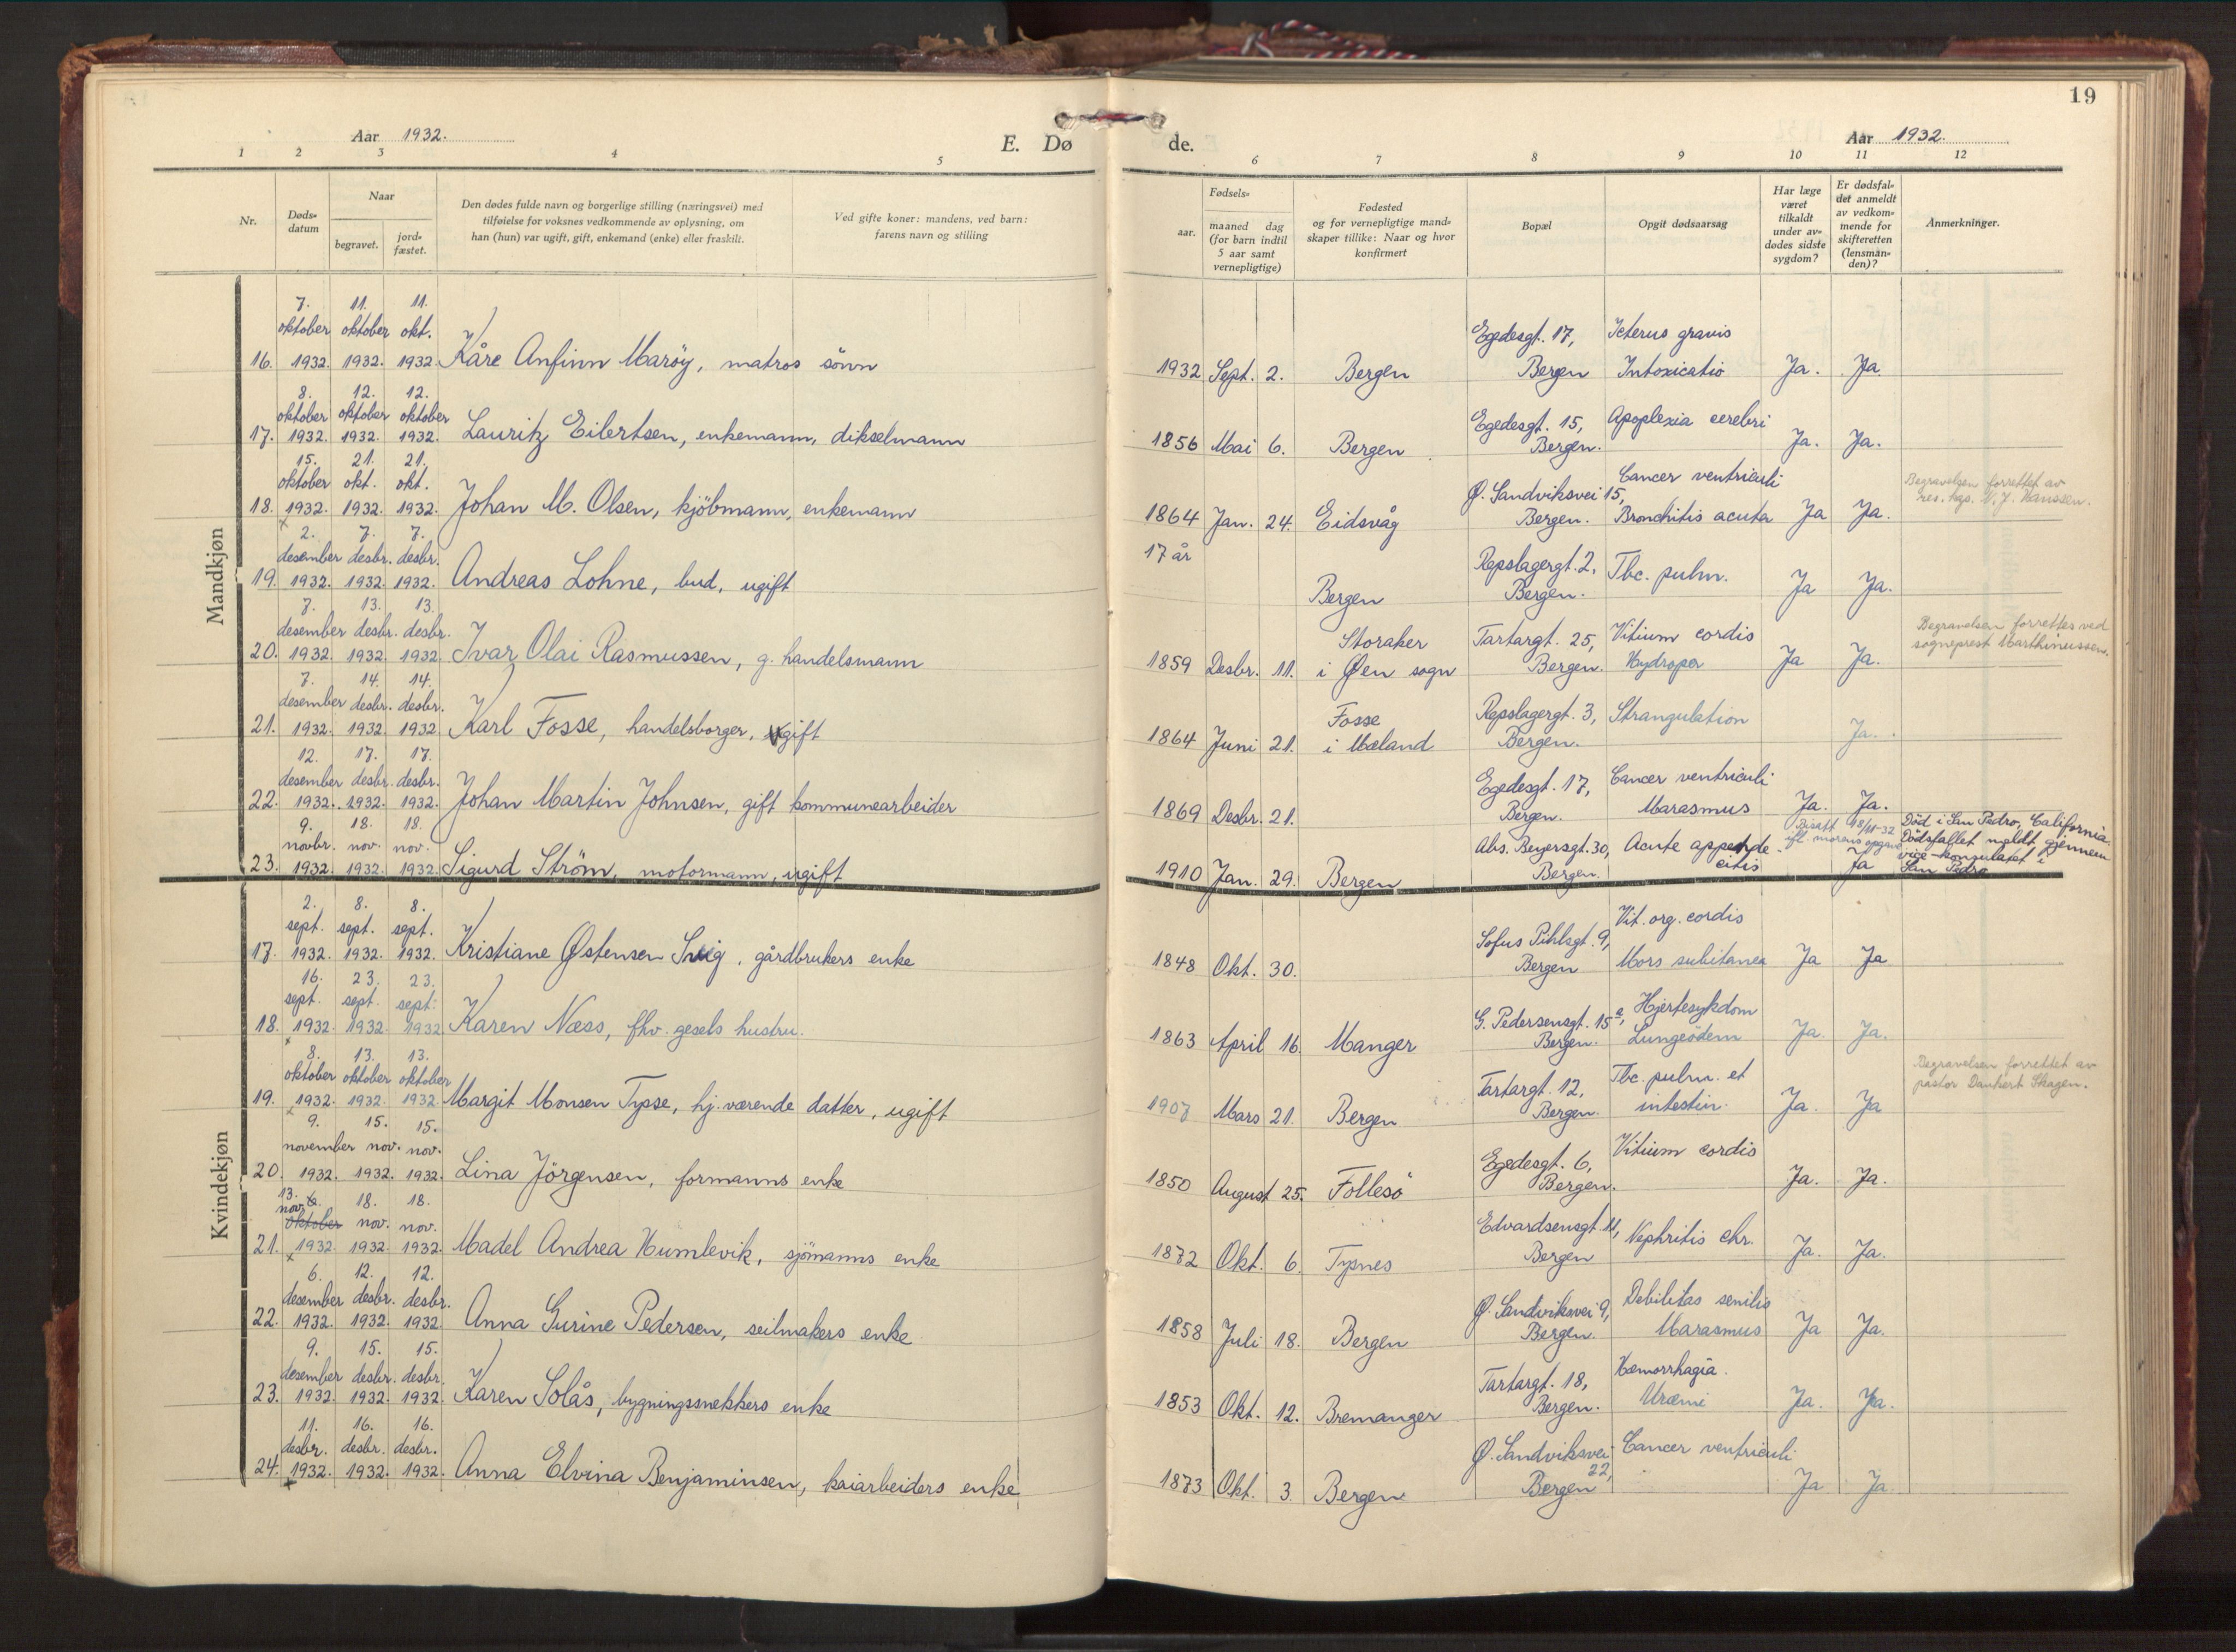 19
Aar 1932.
E. Dø de.
Aar 1932.
1 2 3 4 5 6 7 8 9 10 11 12
Nr.
Døds-
datum
Naar
begravet.
jord-
fæstet.
Den dødes fulde navn og borgerlige stilling (næringsvei) med
tilføielse for voksnes vedkommende av oplysning, om
han (hun) var ugift, gift, enkemand (enke) eller fraskilt.
Ved gifte koner: mandens, ved barn:
farens navn og stilling
Fødsels-
aar.
maaned dag
(for barn indtil
5 aar samt
vernepligtige)
Fødested
og for vernepligtige mand-
skaper tillike: Naar og hvor
konfirmert
Bopæl
Opgit dødsaarsag
Har læge
været
tilkaldt
under av-
dødes sidste
sygdom?
Er dødsfal-
det anmeldt
av vedkom-
mende for
skifteretten
(lensman-
den)?
Anmerkninger.
Mandkjøn
7. 11. 11.
oktober oktober okt. Egedesgt. 17, Icterus gravis
16. 1932. 1932. 1932. Kåre Anfinn Marøy, matros sönn 1932 Sept. 2. Bergen Bergen Intoxicatio Ja. Ja.
8. 12. 12.
oktober oktober oktober Egedesgt. 15, Apoplexia cerebri
17. 1932. 1932. 1932. Lauritz Eilertsen, enkemann, dikselmann 1856 Mai 6. Bergen Bergen. Ja. Ja.
15. 21. 21. Cancer ventriculi Begravelsen forrettet av
oktober okt. okt. Ø. Sandviksvei 15, res. kap. N. J. Hanssen.
18. 1932. 1932. 1932. Johan M. Olsen, kjöbmann, enkemann 1864 Jan. 24. Eidsvåg Bergen. Bronchitis acuta Ja Ja.
2. 7. 7. 17 år
desember desbr. desbr. Repslagergt. 2, Tbc. pulm.
19. 1932. 1932. 1932. Andreas Lohne, bud, ugift Bergen Bergen. Ja Ja.
7. 13. 13. Begravelsen forrettes ved
desember desbr. desbr. Storaker Tartargt. 25, Vitium cordis sogneprest Marthinussen.
20. 1932. 1932. 1932. Ivar Olai Rasmussen, g. handelsmann 1859 Desbr. 11. i Øen sogn Bergen. Hydroper Ja Ja.
7. 14. 14.
desember desbr. desbr. Fosse Repslagergt. 3, Strangulation
21. 1932. 1932 1932 Karl Fosse, handelsborger, ugift 1864 Juni 21. i Mæland Bergen. Ja.
12. 17. 17.
desember desbr. desbr. Egedesgt. 17, Cancer ventriculi
22. 1932. 1932. 1932. Johan Martin Johnsen, gift kommunearbeider 1869 Desbr. 21. Bergen. Marasmus Ja. Ja.
9. 18. 18. 18/11-32 Död i San Pedro, California.
novbr. nov. nov. Abs. Beyersgt. 30, Acute appende- ifl. morens opgave Dödsfallet meldt gjennem
23. 1932. 1932. 1932. Sigurd Ström, motormann, ugift 1910 Jan. 29. Bergen Bergen. citis Ja vice-konsulatet i
San Pedro
Kvindekjøn
2. 8. 8.
sept. sept. sept. Sofus Pihlsgt. 9, Vit. org. cordis
17. 1932. 1932. 1932. Kristiane Østensen, gårdbrukers enke 1848 Okt. 30. Bergen Mors subitanea Ja Ja
16. 23. 23.
sept. sept. sept. G. Pedersensgt. 15a, Hjertesykdom
18. 1932. 1932. 1932 Karen Næss, fhv. gesels hustru. 1863 April 16. Manger Bergen. Lungeödem Ja. Ja.
8. 13. 13. Begravelsen forrettet av
oktober oktober oktober Tartargt. 12, Tbc. pulm. et pastor Dankert Skagen.
19. 1932. 1932. 1932. Margit Monsen Tysse, hj. værende datter, ugift 1907 Mars 21. Bergen Bergen. intestin. Ja. Ja
9. 15. 15.
november nov. nov. Egedesgt. 6, Vitium cordis
20. 1932. 1932. 1932. Lina Jörgensen, formanns enke 1850 August 25. Follesö Bergen. Ja. Ja.
13. 6. 18. 18.
nov. oktober nov. nov. Edvardsensgt. 11, Nephritis chr.
21. 1932. 1932. 1932. Madel Andrea Humlevik, sjömanns enke 1872 Okt. 6. Tysnes Bergen Ja. Ja.
6. 12. 12.
desember desbr. desbr. Ø. Sandviksvei 9, Debilitas senilis
22. 1932. 1932. 1932. Anna Gurine Pedersen, seilmakers enke 1858 Juli 18. Bergen Bergen. Marasmus Ja Ja.
9. 15. 15.
desember desbr. desbr. Tartargt. 18, Hæmorrhagia.
23. 1932. 1932. 1932. Karen Solås, bygningssnekkers enke 1853 Okt. 12. Bremanger Bergen. Uræmi Ja. Ja.
11. 16. 16.
desbr. desbr. desbr. Ø. Sandviksvei 22, Cancer ventriculi
24. 1932. 1932. 1932. Anna Elvina Benjaminsen, kaiarbeiders enke 1873 Okt. 3. Bergen Bergen Ja Ja.